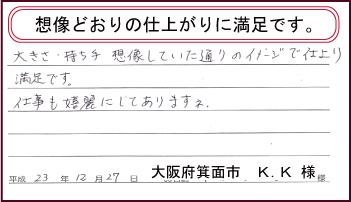 想像どおりの仕上がりに満足です。
大きさ・持ち手 想像していた通りのイメージで仕上り
満足です。
仕事も綺麗にしてありますね。
平成 23 年 12 月 27 日 大阪府箕面市 K.K 様 様